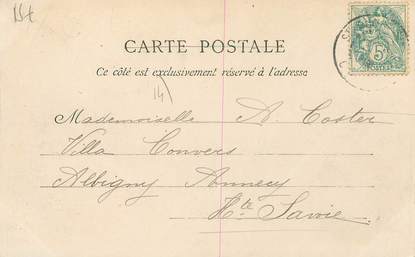 CARTE POSTALE
Ce côté est exclusivement réservé à l'adresse
14
Mademoiselle A Coster
Villa Convers
Albigny Annecy
Hte Savoie
5c